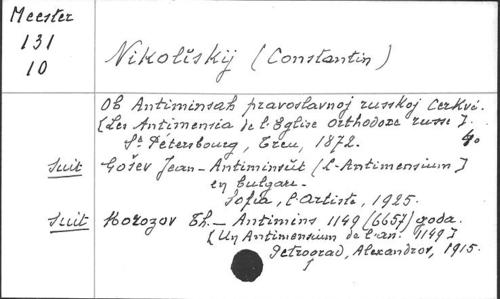 Meester
131
10
Nikolískij (Constantin)
Ob Antiminsah pravoslavnoj russkoj Cerkvi.
[Les Antimensia de l'Eglise orthodoxe russe].
St Pétersbourg, 1872. 4o
suit Gošev Jean - Antiminsŭt (l'Antimensium)
en bulgare.
Sofia, l'Artiste, 1925.
suit Morozov Th. - Antimins 1149 (6657) goda.
[Un Antimensium de l'an. 1149]
Petrograd, Alexandrov, 1915.